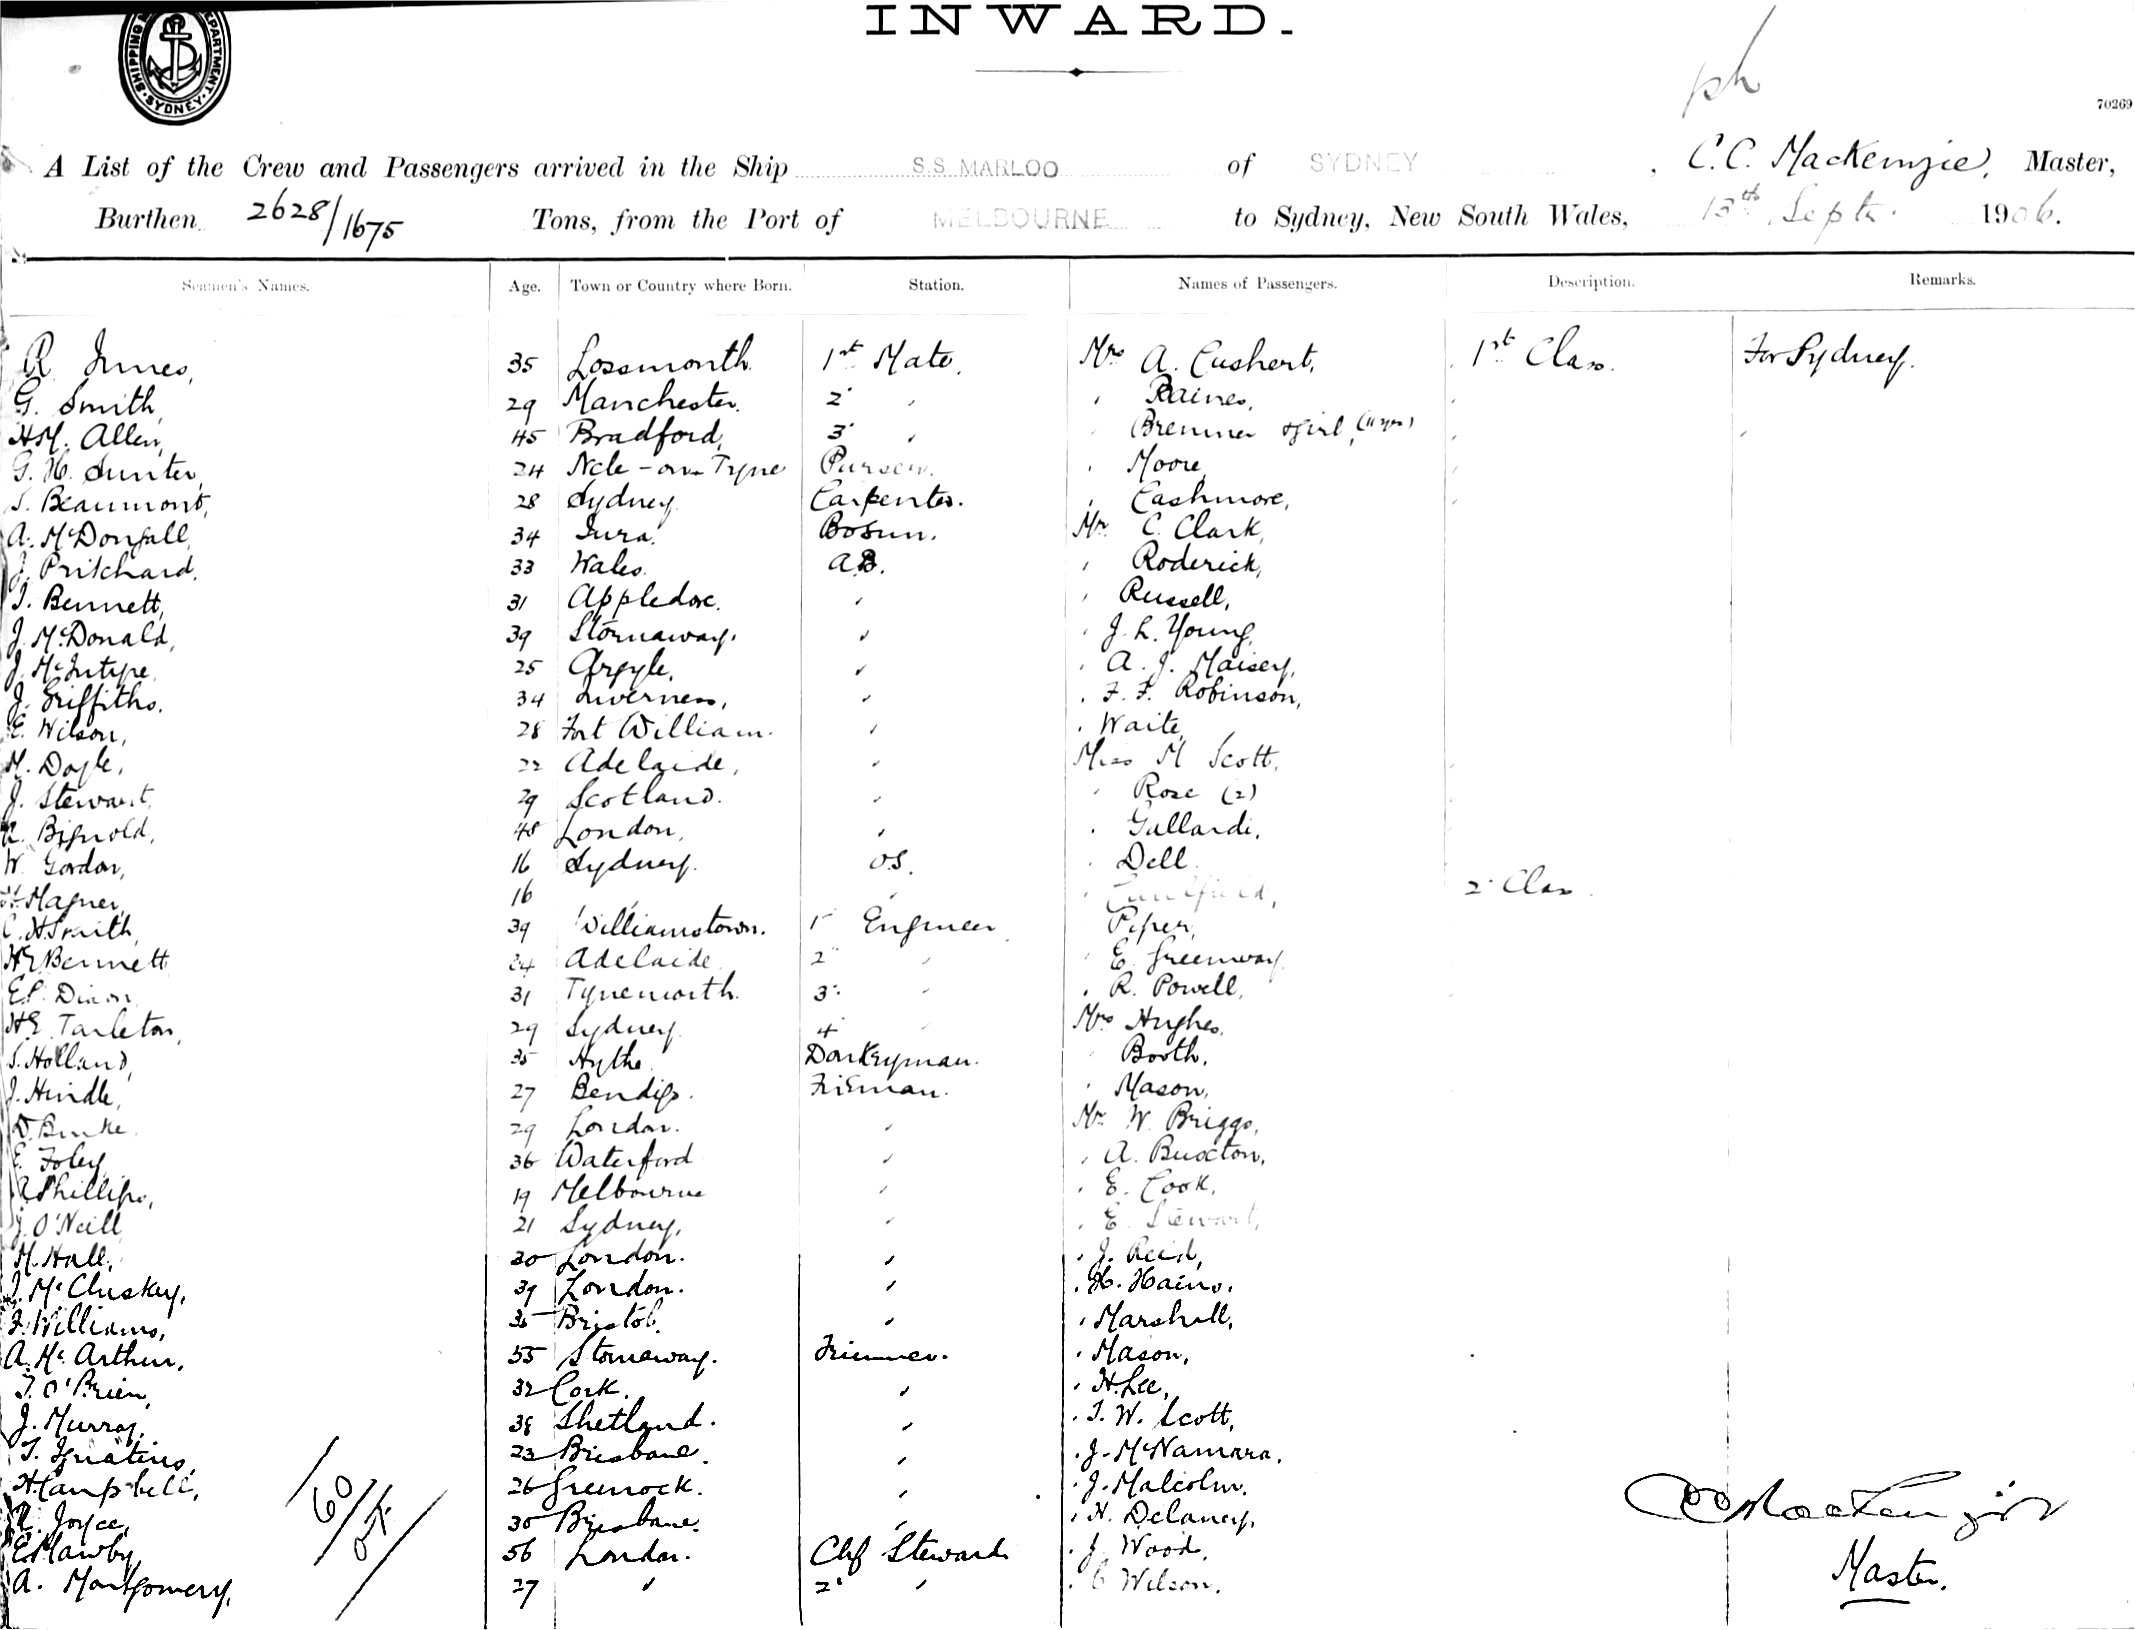 INWARD.
SHIPPING DEPARTMENT. SYDNEY
ph
70269
A List of the Crew and Passengers arrived in the Ship S.S. MARLOO of SYDNEY, C.C. MacKenzie, Master,
Burthen 2628/1675 Tons, from the Port of MELBOURNE to Sydney, New South Wales, 13th Septr. 1906.
Seamen's Names. Age. Town or Country where Born. Station. Names of Passengers. Description. Remarks.
R Innes, 35 Lossmouth. 1st Mate. Mrs A. Cushert, 1st Class. For Sydney.
G. Smith, 29 Manchester. 2 " " Raines,
HM. Allen, 45 Bradford, 3 " " Bremner & girl (11 yrs)
G. H. Sunter, 24 Ncle-on-Tyne Purser. " Moore,
S. Beaumont, 28 Sydney. Carpenter. " Cashmore,
A. McDougall, 34 Jura. Bosun. Mr C. Clark,
J. Pritchard. 33 Wales. AB. " Roderick,
J. Bennett, 31 Appledore. " " Russell,
J. McDonald, 39 Stornaway. " " J. L. Young,
J. McIntyre. 25 Argyle. " " A. J. Maisey,
J. Griffiths. 34 Inverness, " " F. F. Robinson,
E. Wilson, 28 Fort William. " " Waite,
M. Doyle, 22 Adelaide, " Miss M Scott.
J. Stewart, 29 Scotland. " " Rose (2)
Bignold, 48 London, " " Gallardi,
W. Gordon, 16 Sydney. O.S. " Dell
Magner, 16 " " " 2 Class
C. H. Smith, 39 Williamstown. 1st Engineer Piper,
HE Bennett 24 Adelaide 2 " " E. Greenway
E.P. Dixon, 31 Tynemouth. 3 " " R. Powell,
HE. Tarleton, 29 Sydney. 4 " Mrs Hughes,
S. Holland, 35 Hythe Donkeyman. " Booth,
J. Hindle, 27 Bendigo. Fireman. " Mason,
D. Burke 29 London. " Mr W. Briggs,
E. Foley 36 Waterford " " A. Buxton,
Phillips, 19 Melbourne " " E. Cook,
J. O'Neill 21 Sydney, " " E. Stewart,
M. Hall, 30 London. " " J. Reid,
J. McCluskey, 39 London. " " H. Hains,
F. Williams, 35 Bristol. " " Marshall,
A. McArthur, 55 Stornaway. Trimmer. " Mason,
T. O'Brien, 32 Cork. " " H. Lee,
J. Murray, 38 Shetland. " " T. W. Scott,
T. Ignatius, 23 Brisbane. " " J. McNamara.
H. Campbell, 26 Greenock. " " J. Malcolm.
R. Joyce, 30 Brisbane. " " H. Delaney,
E. Mawby 56 London. Chf Steward " J. Wood,
A. Montgomery, 27 " 2 " " C Wilson.
CC Mackenzie
Master.